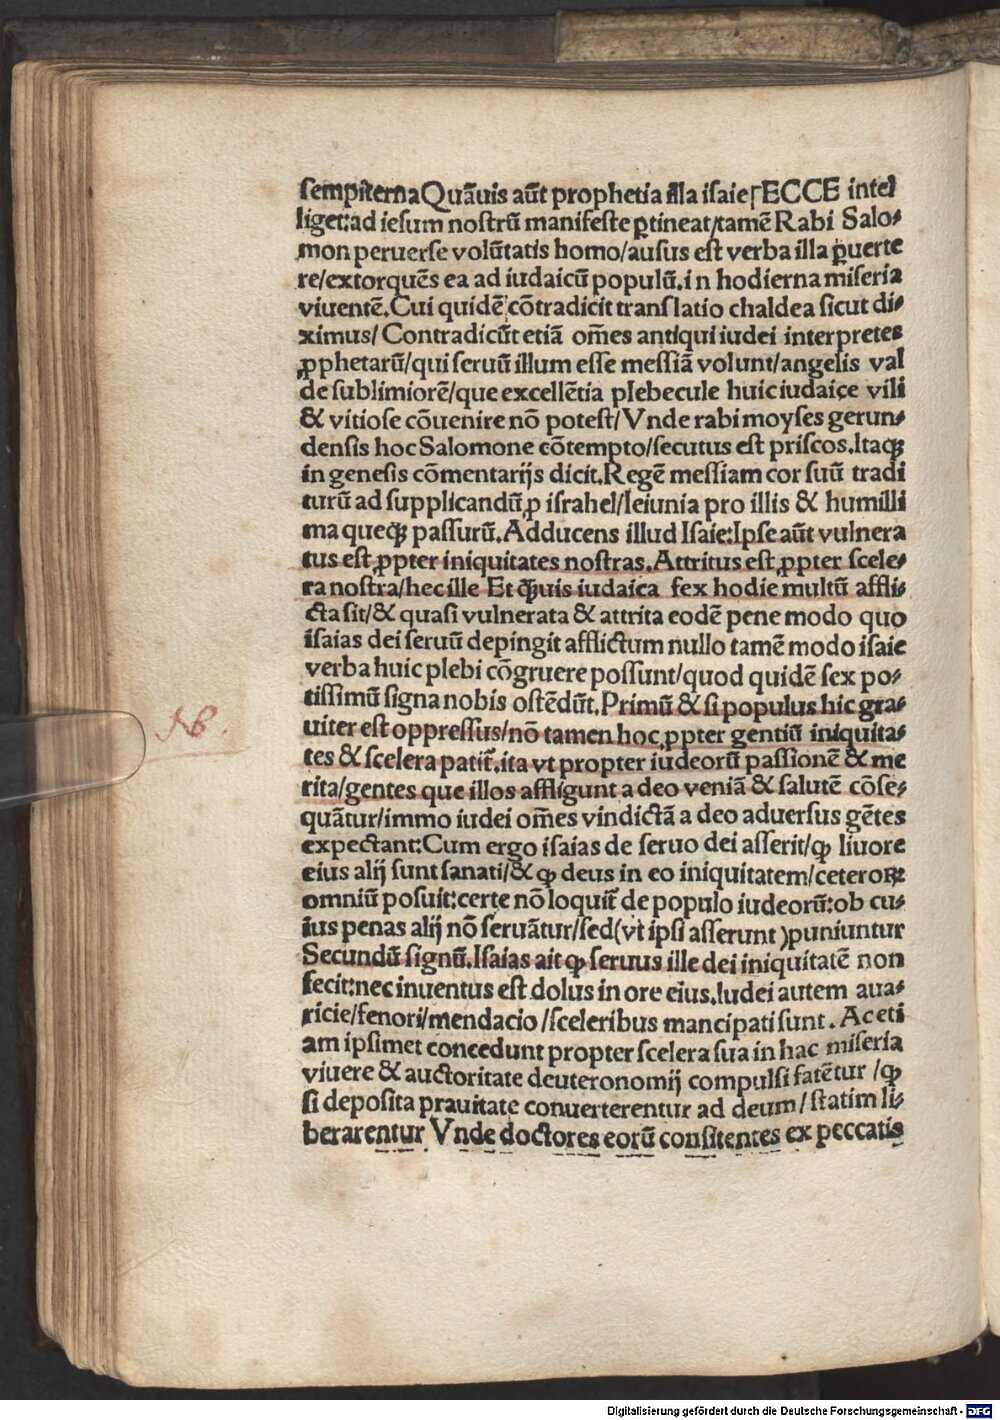 sempiterna Quãuis aũt prophetia illa isaie⌈ECCE intel
liget:ad iesum nostrũ manifeste ꝑtineat/tamẽ Rabi Salo⸗
mon peruerse volũtatis homo/ausus est verba illa ꝑuerte
re/extorquẽs ea ad iudaicũ populũ.in hodierna miseria
viuentẽ.Cui quidẽ cõtradicit translatio chaldea sicut di⸗
ximus/Contradicũt etiã oẽs antiqui iudei interpretes
ꝓphetarũ/qui seruũ illum esse messiã volunt/angelis val
de sublimiorẽ/que excellẽtia plebecule huic iudaiçe vili
& vitiose cõuenire nõ potest/Vnde rabi moyses gerun⸗
densis hoc Salomone cõtempto/secutus est priscos.Itaqꝫ
in genesis cõmentarijs dicit.Regẽ messiam cor suũ tradi
turũ ad supplicandũ,ꝓ israhel/Ieiunia pro illis & humilli
ma queqꝫ passurũ.Adducens illud Isaie:Ipse aũt vulnera
tus est,ꝓpter iniquitates nostras.Attritus est,ꝓpter scele⸗
ra nostra/hec ille Et q̃uis iudaica fex hodie multũ affli⸗
cta sit/& quasi vulnerata & attrita eodẽ pene modo quo
isaias dei seruũ depingit afflictum nullo tamẽ modo isaie
verba huic plebi cõgruere possunt/quod quidẽ sex po⸗
tissimũ signa nobis ostẽdũt.Primũ & si populus hic gra⸗
uiter est oppressus/nõ tamen hoc,ꝓpter gentiũ iniquita⸗
tes & scelera patit᷑.ita vt propter iudeorũ passionẽ & me
rita/gentes que illos affligunt a deo veniã & salutẽ cõse⸗
quãtur/immo iudei oẽs vindictã a deo aduersus gẽtes
expectant:Cum ergo isaias de seruo dei asserit/ꝙ liuore
eius alij sunt sanati/& ꝙ deus in eo iniquitatem/ceteroꝝ
omniũ posuit:certe nõ loquit᷑ de populo iudeorũ:ob cu⸗
ius penas alij nõ seruãtur/sed(vt ipsi asserunt)puniuntur
Secundũ signũ.Isaias ait ꝙ seruus ille dei iniquitatẽ non
fecit:nec inuentus est dolus in ore eius.Iudei autem aua⸗
ricie/fenori/mendacio/sceleribus mancipati sunt.Ac eti
am ipsimet concedunt propter scelera sua in hac miseria
viuere & auctoritate deuteronomij compulsi fatẽtur/ꝙ
si deposita prauitate conuerterentur ad deum/statim li⸗
berarentur Vnde doctores eorũ consitentes ex peccatis
NB.
Digitalisierung gefördert durch die Deutsche Forschungsgemeinschaft - DFG